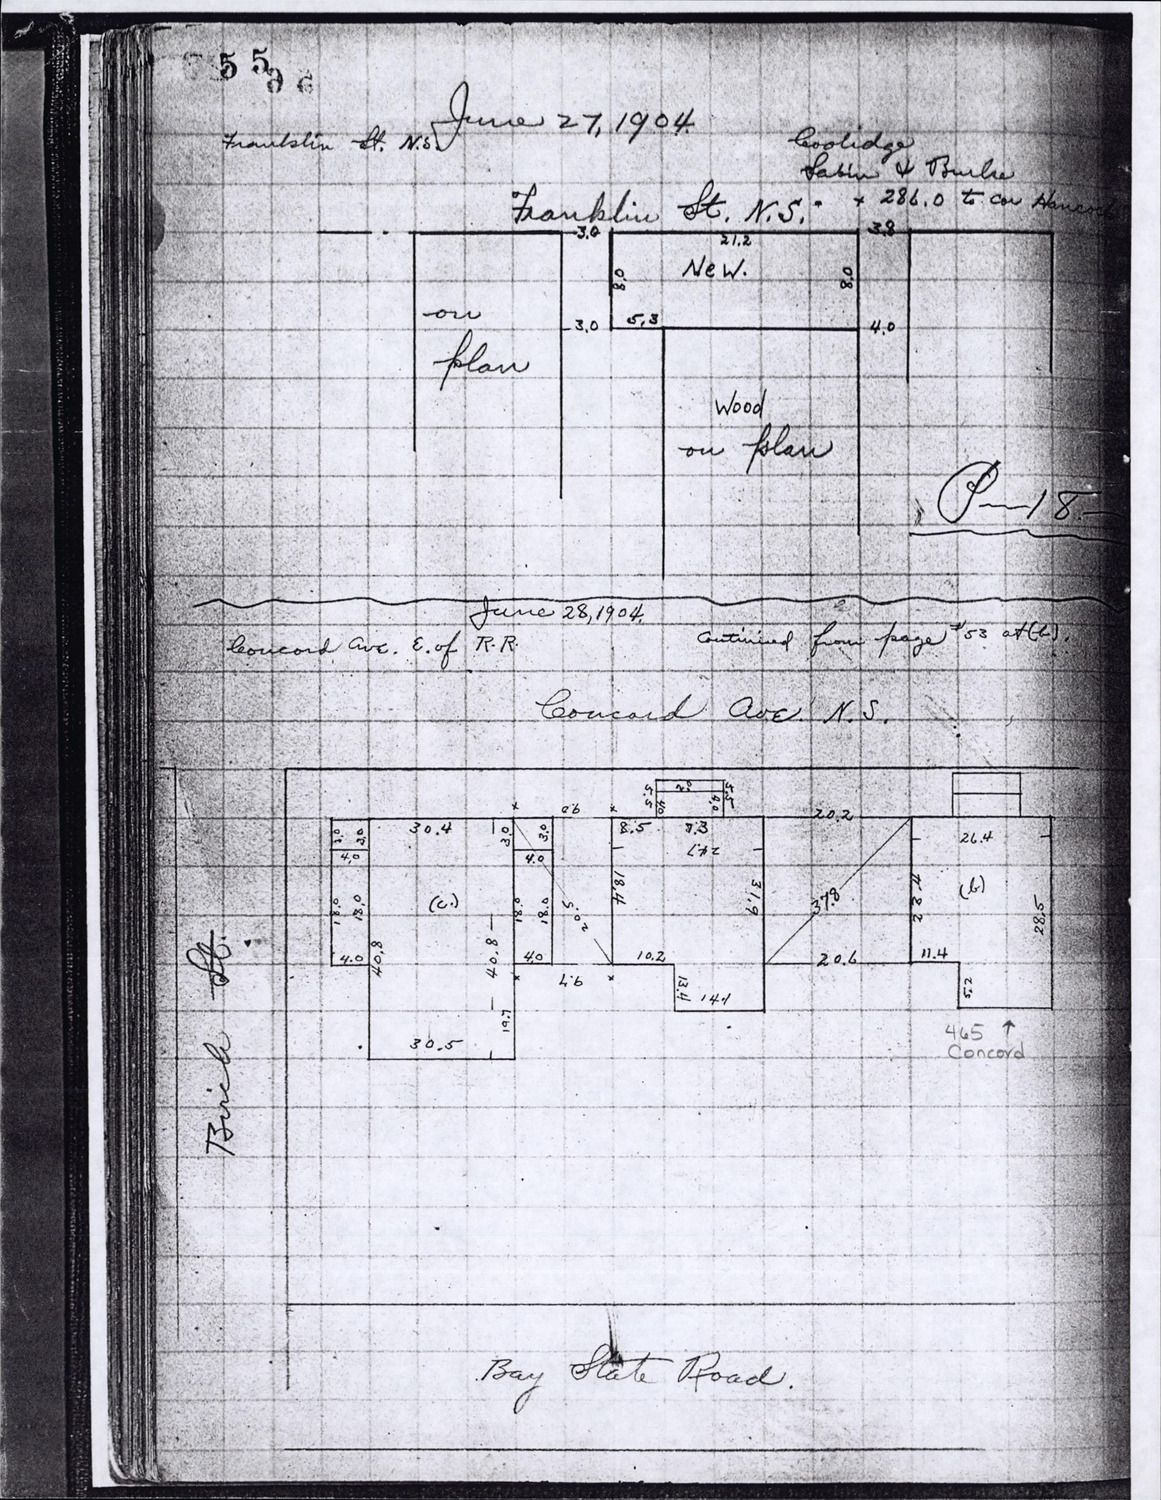 55
June 27, 1904.
Franklin St. N.S.
Coolidge
Sabin & Burke
Franklin St. N.S. + 286.0 to cor Hancock
3.0 21.2 3.8
New.
8.0 8.0
on
plan
3.0 5.3 4.0
Wood
on plan
P-18-
June 28, 1904.
Concord Ave. E. of R.R. Continued from page #53 at (b).
Concord Ave. N.S.
3.0 3.0 30.4 3.0 3.0 8.5 20.2
4.0 4.0 24.7 26.4
18.0 18.0 (c) 18.0 18.0 20.5 18.4 31.9 37.8 28.2 (b) 28.5
4.0 40.8 40.8 4.0 10.2 20.6 11.4
9.7
19.7 13.4 14.1 5.2
30.5
465 ↑
Concord
Birch St.
Bay State Road.